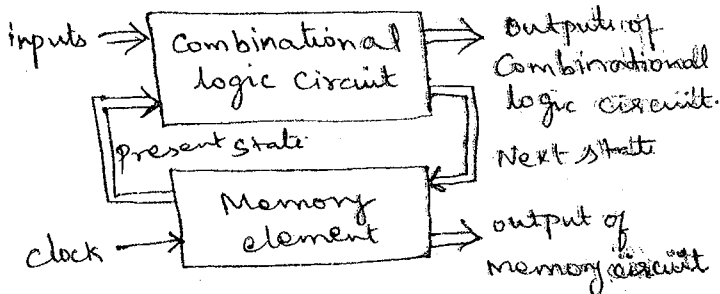 inputs
Combinational
logic circuit
Outputs of
Combinational
logic circuit.
present state
Next state
Memory
element
clock
output of
memory circuit